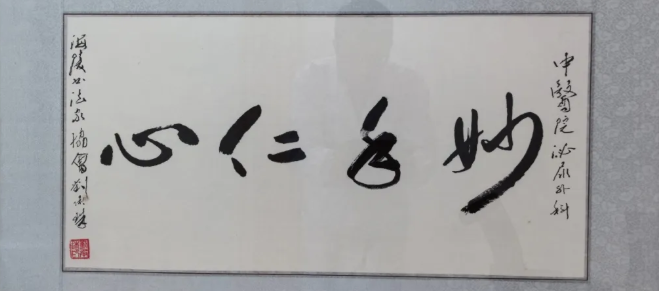 中醫院泌尿外科
妙手仁心
海陵书法家協會劉